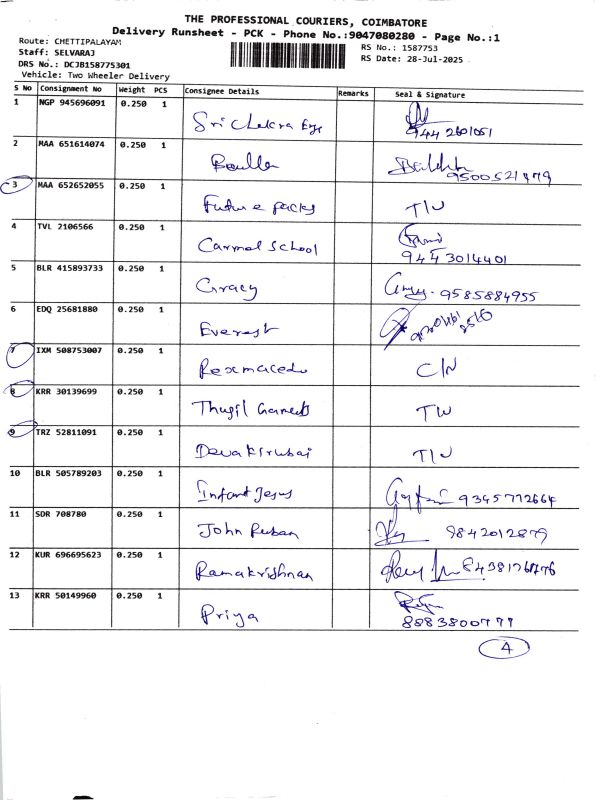 THE PROFESSIONAL COURIERS, COIMBATORE
Delivery Runsheet - PCK - Phone No.:9047080280 - Page No.:1
Route: CHETTIPALAYAM
Staff: SELVARAJ
DRS No.: DCJB158775301
Vehicle: Two Wheeler Delivery
RS No.: 1587753
RS Date: 28-Jul-2025
S No Consignment No Weight PCS Consignee Details Remarks Seal & Signature
1 NGP 945696091 0.250 1
Sri Chakra Eng 944 2601051
2 MAA 651614074 0.250 1
9500521479
3 MAA 652652055 0.250 1
Future packs T/N
4 TVL 2106566 0.250 1
Carmel School 9443014401
5 BLR 415893733 0.250 1
Gracy 9585884955
6 EDQ 25681880 0.250 1
Everest
7 IXM 508753007 0.250 1
C/N
8 KRR 30139699 0.250 1
T/N
9 TRZ 52811091 0.250 1
Devakirubai T/N
10 BLR 505789203 0.250 1
Infant Jesus 9345772664
11 SDR 708780 0.250 1
John Ruban 9842012879
12 KUR 696695623 0.250 1
Ramakrishnan 8438176776
13 KRR 50149960 0.250 1
Priya 8883800777
4